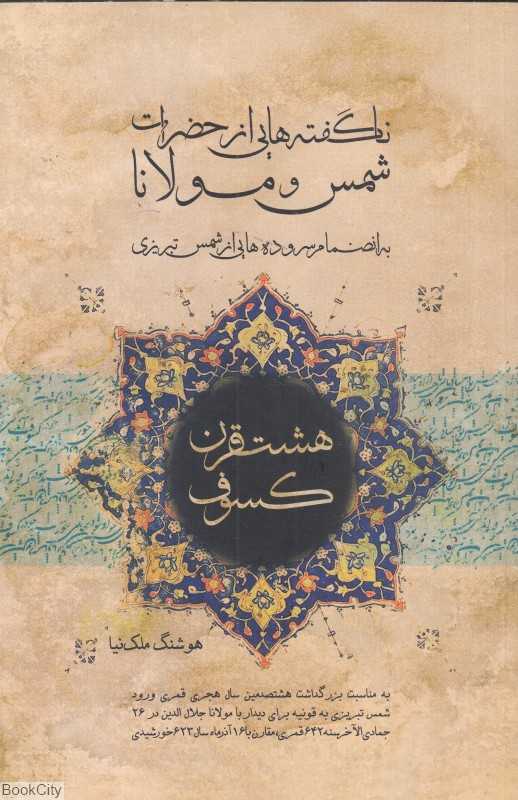 ناگفته‌هایی از حضرات
شمس و مولانا
به انضمام سروده‌هایی از شمس تبریزی
هشت قرن
کسوف
هوشنگ ملک‌نیا
به مناسبت بزرگداشت هشتصدمین سال هجری قمری ورود
شمس تبریزی به قونیه برای دیدار با مولانا جلال الدین در ۲۶
جمادی الآخر سنه ۶۴۲ قمری، مقارن با ۱۶ آذرماه سال ۶۲۳ خورشیدی
BookCity